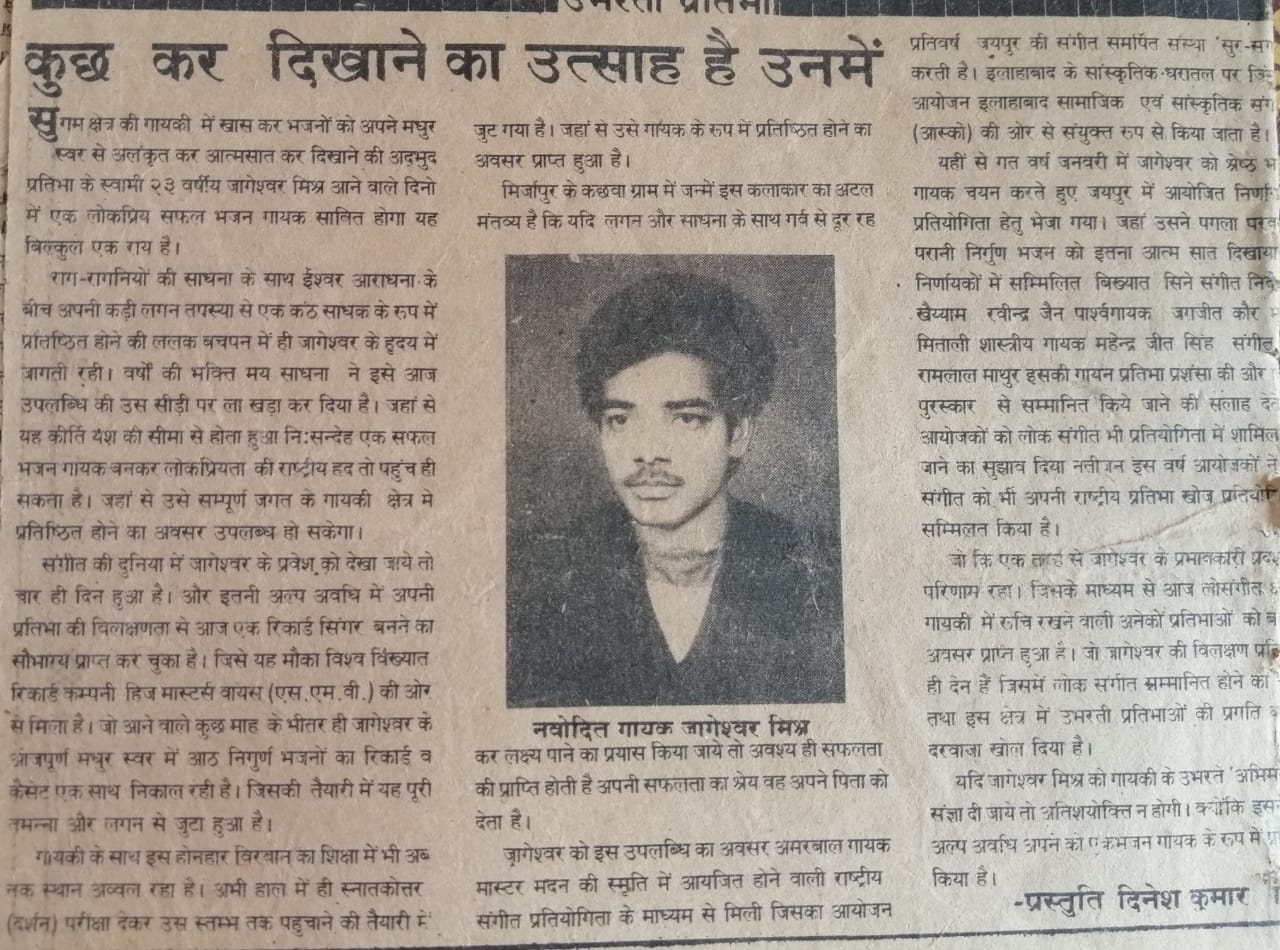 उभरती प्रतिभा
कुछ कर दिखाने का उत्साह है उनमें
सुगम क्षेत्र की गायकी में खास कर भजनों को अपने मधुर
स्वर से अलंकृत कर आत्मसात कर दिखाने की अदभुद
प्रतिभा के स्वामी २३ वर्षीय जागेश्वर मिश्र आने वाले दिनो
में एक लोकप्रिय सफल भजन गायक साबित होगा यह
बिल्कुल एक राय है।
राग-रागनियों की साधना के साथ ईश्वर आराधना के
बीच अपनी कड़ी लगन तपस्या से एक कंठ साधक के रुप में
प्रतिष्ठित होने की ललक बचपन में ही जागेश्वर के हृदय में
जागती रही। वर्षों की भक्ति मय साधना ने इसे आज
उपलब्धि की उस सीढ़ी पर ला खड़ा कर दिया है। जहां से
यह कीर्ति यश की सीमा से होता हुआ नि:सन्देह एक सफल
भजन गायक बनकर लोकप्रियता की राष्ट्रीय हद तो पहुंच ही
सकता है। जहां से उसे सम्पूर्ण जगत के गायकी क्षेत्र मे
प्रतिष्ठित होने का अवसर उपलब्ध हो सकेगा।
संगीत की दुनिया में जागेश्वर के प्रवेश को देखा जाये तो
चार ही दिन हुआ है। और इतनी अल्प अवधि में अपनी
प्रतिभा की विलक्षणता से आज एक रिकार्ड सिंगर बनने का
सौभाग्य प्राप्त कर चुका है। जिसे यह मौका विश्व विख्यात
रिकार्ड कम्पनी हिज मास्टर्स वायस (एस.एम.वी.) की ओर
से मिला है। जो आने वाले कुछ माह के भीतर ही जागेश्वर के
ओजपूर्ण मधुर स्वर में आठ निगुर्ण भजनों का रिकार्ड व
कैसेट एक साथ निकाल रही है। जिसकी तैयारी में यह पूरी
तमन्ना और लगन से जुटा हुआ है।
गायकी के साथ इस होनहार विरवान का शिक्षा में भी अब
तक स्थान अव्वल रहा है। अभी हाल में ही स्नातकोत्तर
(दर्शन) परीक्षा देकर उस स्तम्भ तक पहुचाने की तैयारी में
जुट गया है। जहां से उसे गायक के रुप में प्रतिष्ठित होने का
अवसर प्राप्त हुआ है।
मिर्जापुर के कछवा ग्राम में जन्में इस कलाकार का अटल
मंतव्य है कि यदि लगन और साधना के साथ गर्व से दूर रह
नवोदित गायक जागेश्वर मिश्र
कर लक्ष्य पाने का प्रयास किया जाये तो अवश्य ही सफलता
की प्राप्ति होती है अपनी सफलता का श्रेय वह अपने पिता को
देता है।
जागेश्वर को इस उपलब्धि का अवसर अमरबाल गायक
मास्टर मदन की स्मृति में आयजित होने वाली राष्ट्रीय
संगीत प्रतियोगिता के माध्यम से मिली जिसका आयोजन
प्रतिवर्ष जयपुर की संगीत समर्पित संस्था 'सुर-सग
करती है। इलाहाबाद के सांस्कृतिक धरातल पर
आयोजन इलाहाबाद सामाजिक एवं सांस्कृतिक संग
(आस्को) की ओर से संयुक्त रुप से किया जाता है।
यहीं से गत वर्ष जनवरी में जागेश्वर को श्रेष्ठ भ
गायक चयन करते हुए जयपुर में आयोजित निर्णा
प्रतियोगिता हेतु भेजा गया। जहां उसने पगला
परानी निर्गुण भजन को इतना आत्म सात दिखाया
निर्णायकों में सम्मिलित बिख्यात सिने संगीत निर्दे
खैय्याम रवीन्द्र जैन पार्श्वगायक जगजीत कौर
मिताली शास्त्रीय गायक महेन्द्र जीत सिंह संगीत
रामलाल माथुर इसकी गायन प्रतिभा प्रशंसा की और
पुरस्कार से सम्मानित किये जाने की सलाह
आयोजकों को लोक संगीत भी प्रतियोगिता में शामिल
जाने का सुझाव दिया नतीजन इस वर्ष आयोजकों ने
संगीत को भी अपनी राष्ट्रीय प्रतिभा खोज प्रतियोगि
सम्मिलत किया है।
जो कि एक तरह से जागेश्वर के प्रभावकारी
परिणाम रहा। जिसके माध्यम से आज लोसंगीत
गायकी में रुचि रखने वाली अनेकों प्रतिभाओं को
अवसर प्राप्त हुआ है। जो जागेश्वर की विलक्षण
ही देन हैं जिसमें लोक संगीत सम्मानित होने का
तथा इस क्षेत्र में उभरती प्रतिभाओं की प्रगति
दरवाजा खोल दिया है।
यदि जागेश्वर मिश्र को गायकी के उभरते 'अभिम
संज्ञा दी जाये तो अतिशयोक्ति न होगी। क्योंकि
अल्प अवधि अपने को एक भजन गायक के रूप में
किया है।
-प्रस्तुति दिनेश कुमार